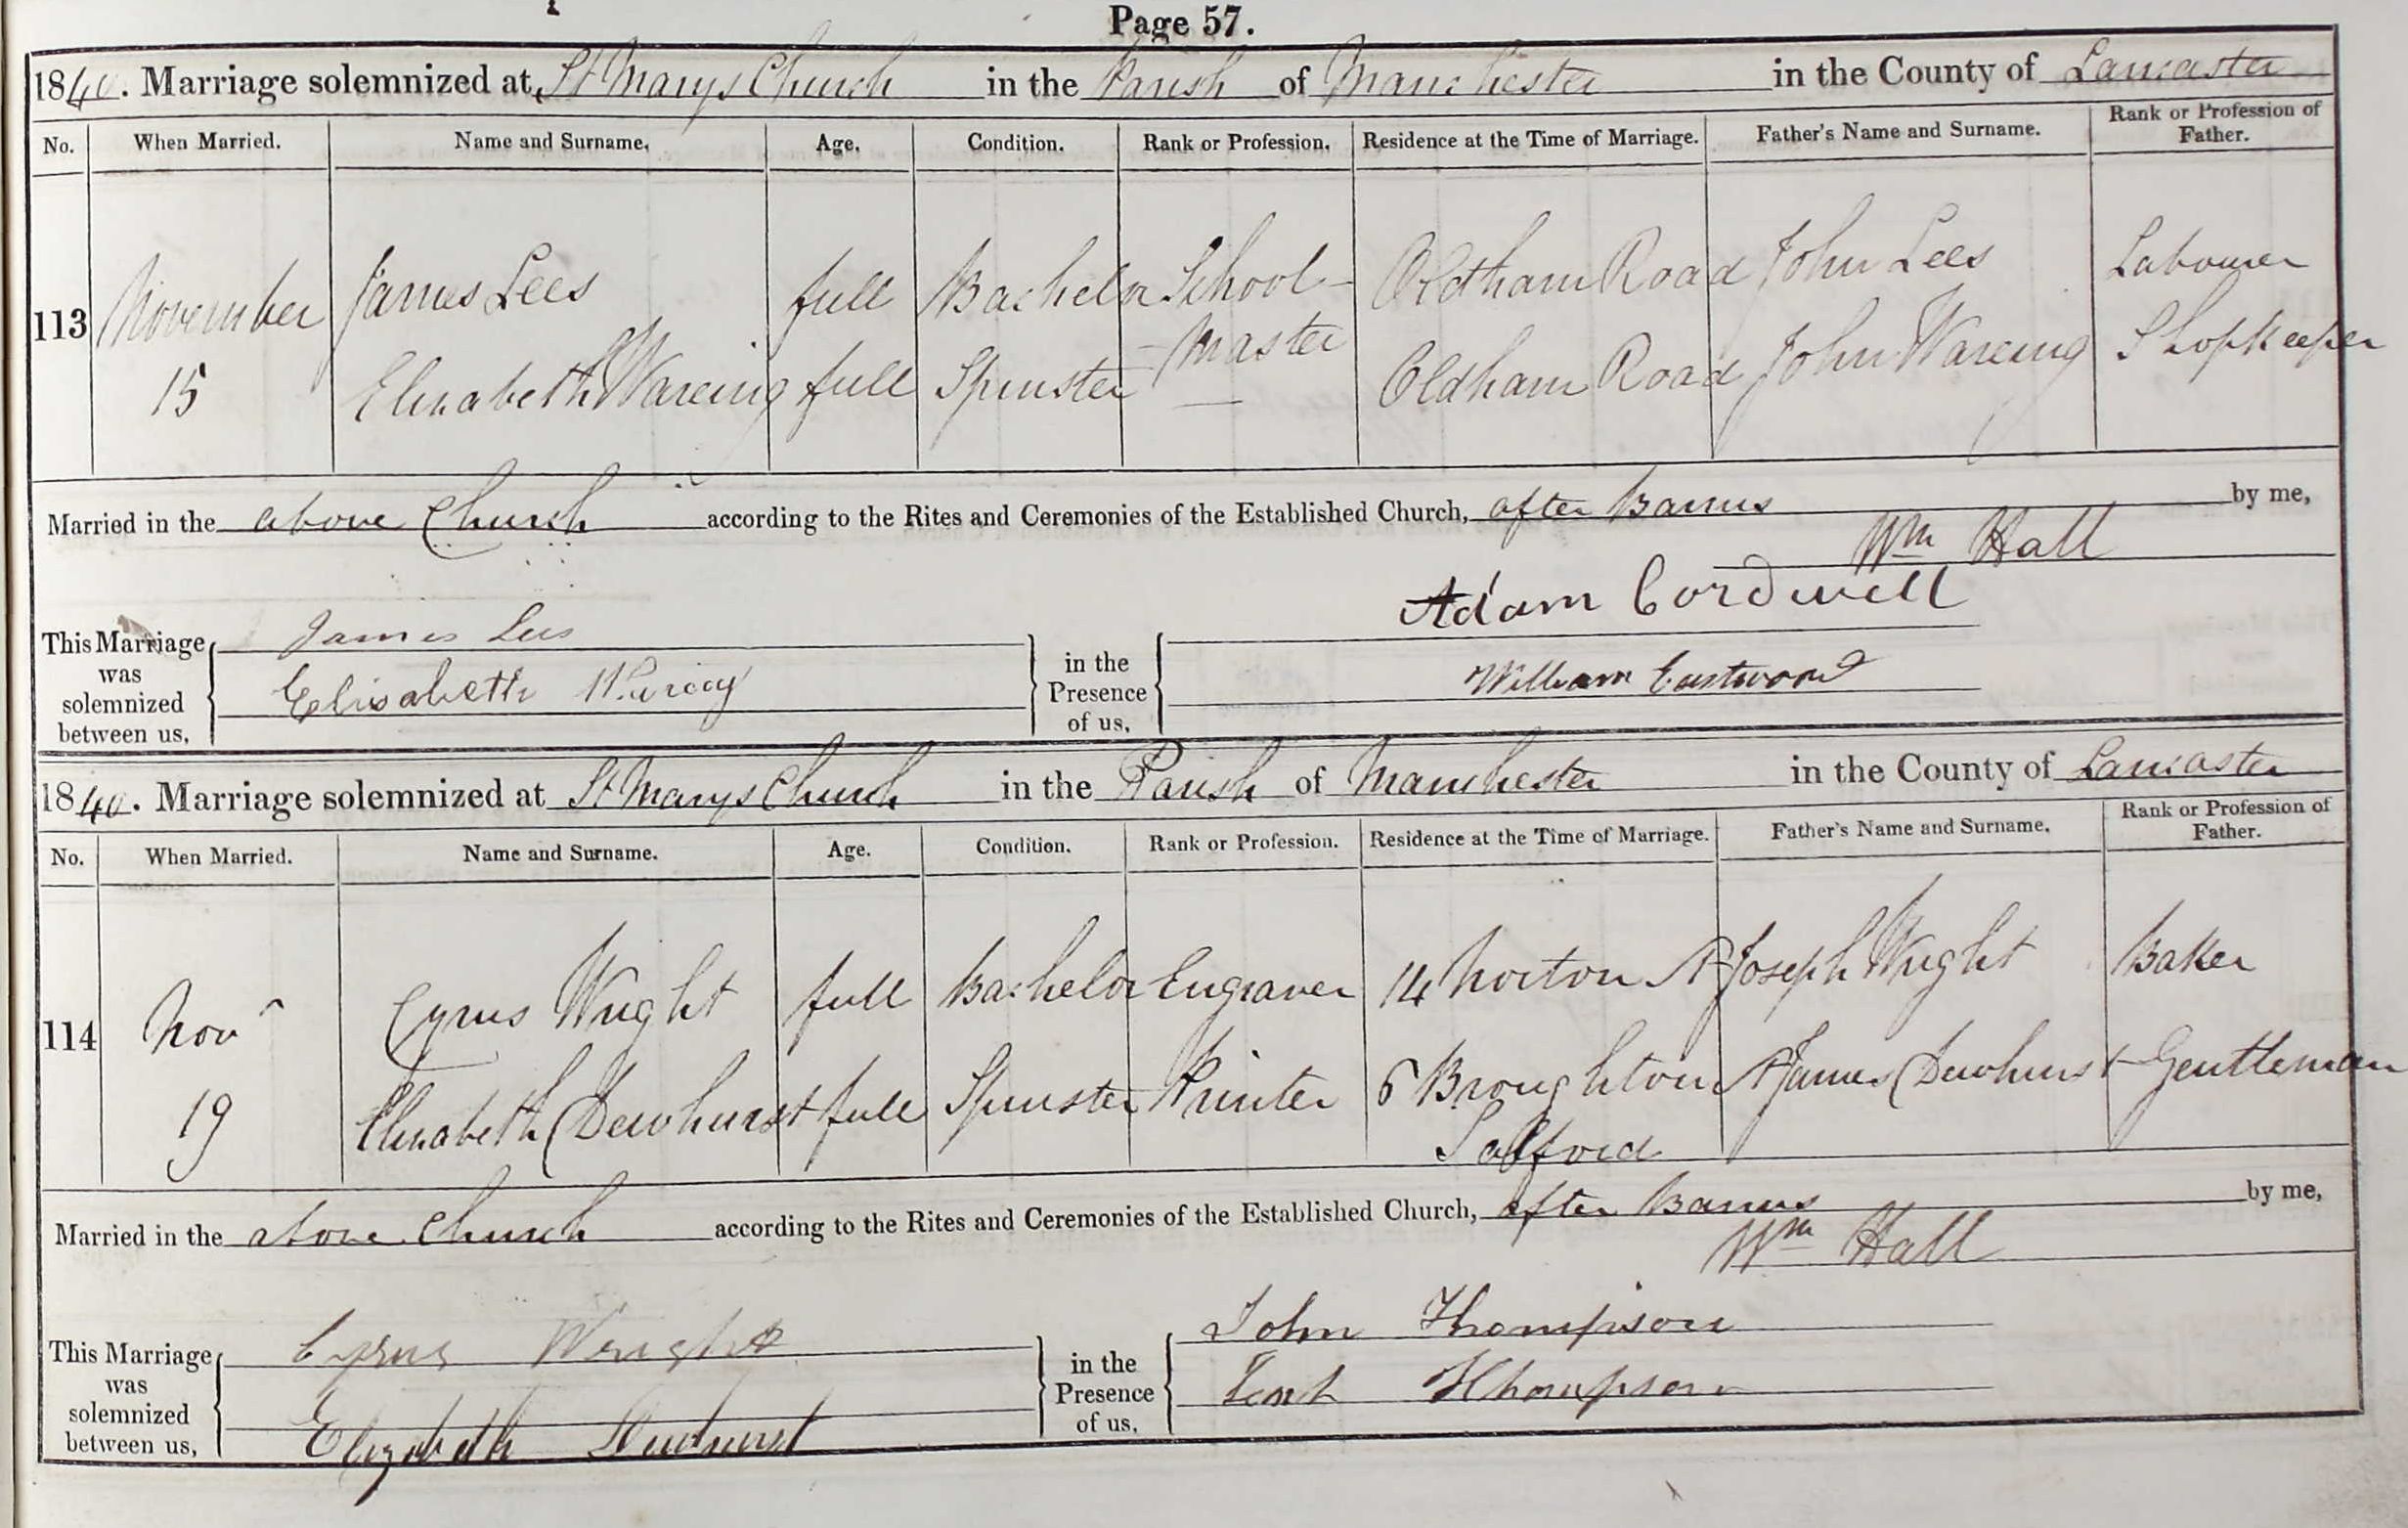 Page 57.
1840. Marriage solemnized at St Marys Church in the Parish of Manchester in the County of Lancaster
No. When Married. Name and Surname. Age. Condition. Rank or Profession. Residence at the Time of Marriage. Father's Name and Surname. Rank or Profession of Father.
113 November 15 James Lees full Bachelor School-Master Oldham Road John Lees Labourer
Elizabeth Wareing full Spinster — Oldham Road John Wareing Shopkeeper
Married in the above Church according to the Rites and Ceremonies of the Established Church, after Banns by me,
Wm Hall
This Marriage was solemnized between us, James Lees in the Presence of us, Adam Cordwell
Elisabeth William Eastwood
1840. Marriage solemnized at St Marys Church in the Parish of Manchester in the County of Lancaster
No. When Married. Name and Surname. Age. Condition. Rank or Profession. Residence at the Time of Marriage. Father's Name and Surname. Rank or Profession of Father.
114 Novr 19 Cyrus Wright full Bachelor Engraver 14 Norton St Joseph Wright Baker
Elizabeth Dewhurst full Spinster Printer 6 Broughton St James Dewhurst Gentleman
Salford
Married in the above Church according to the Rites and Ceremonies of the Established Church, after Banns by me,
Wm Hall
This Marriage was solemnized between us, Cyrus Wright in the Presence of us, John Thompson
Elizabeth Dewhurst Thompson